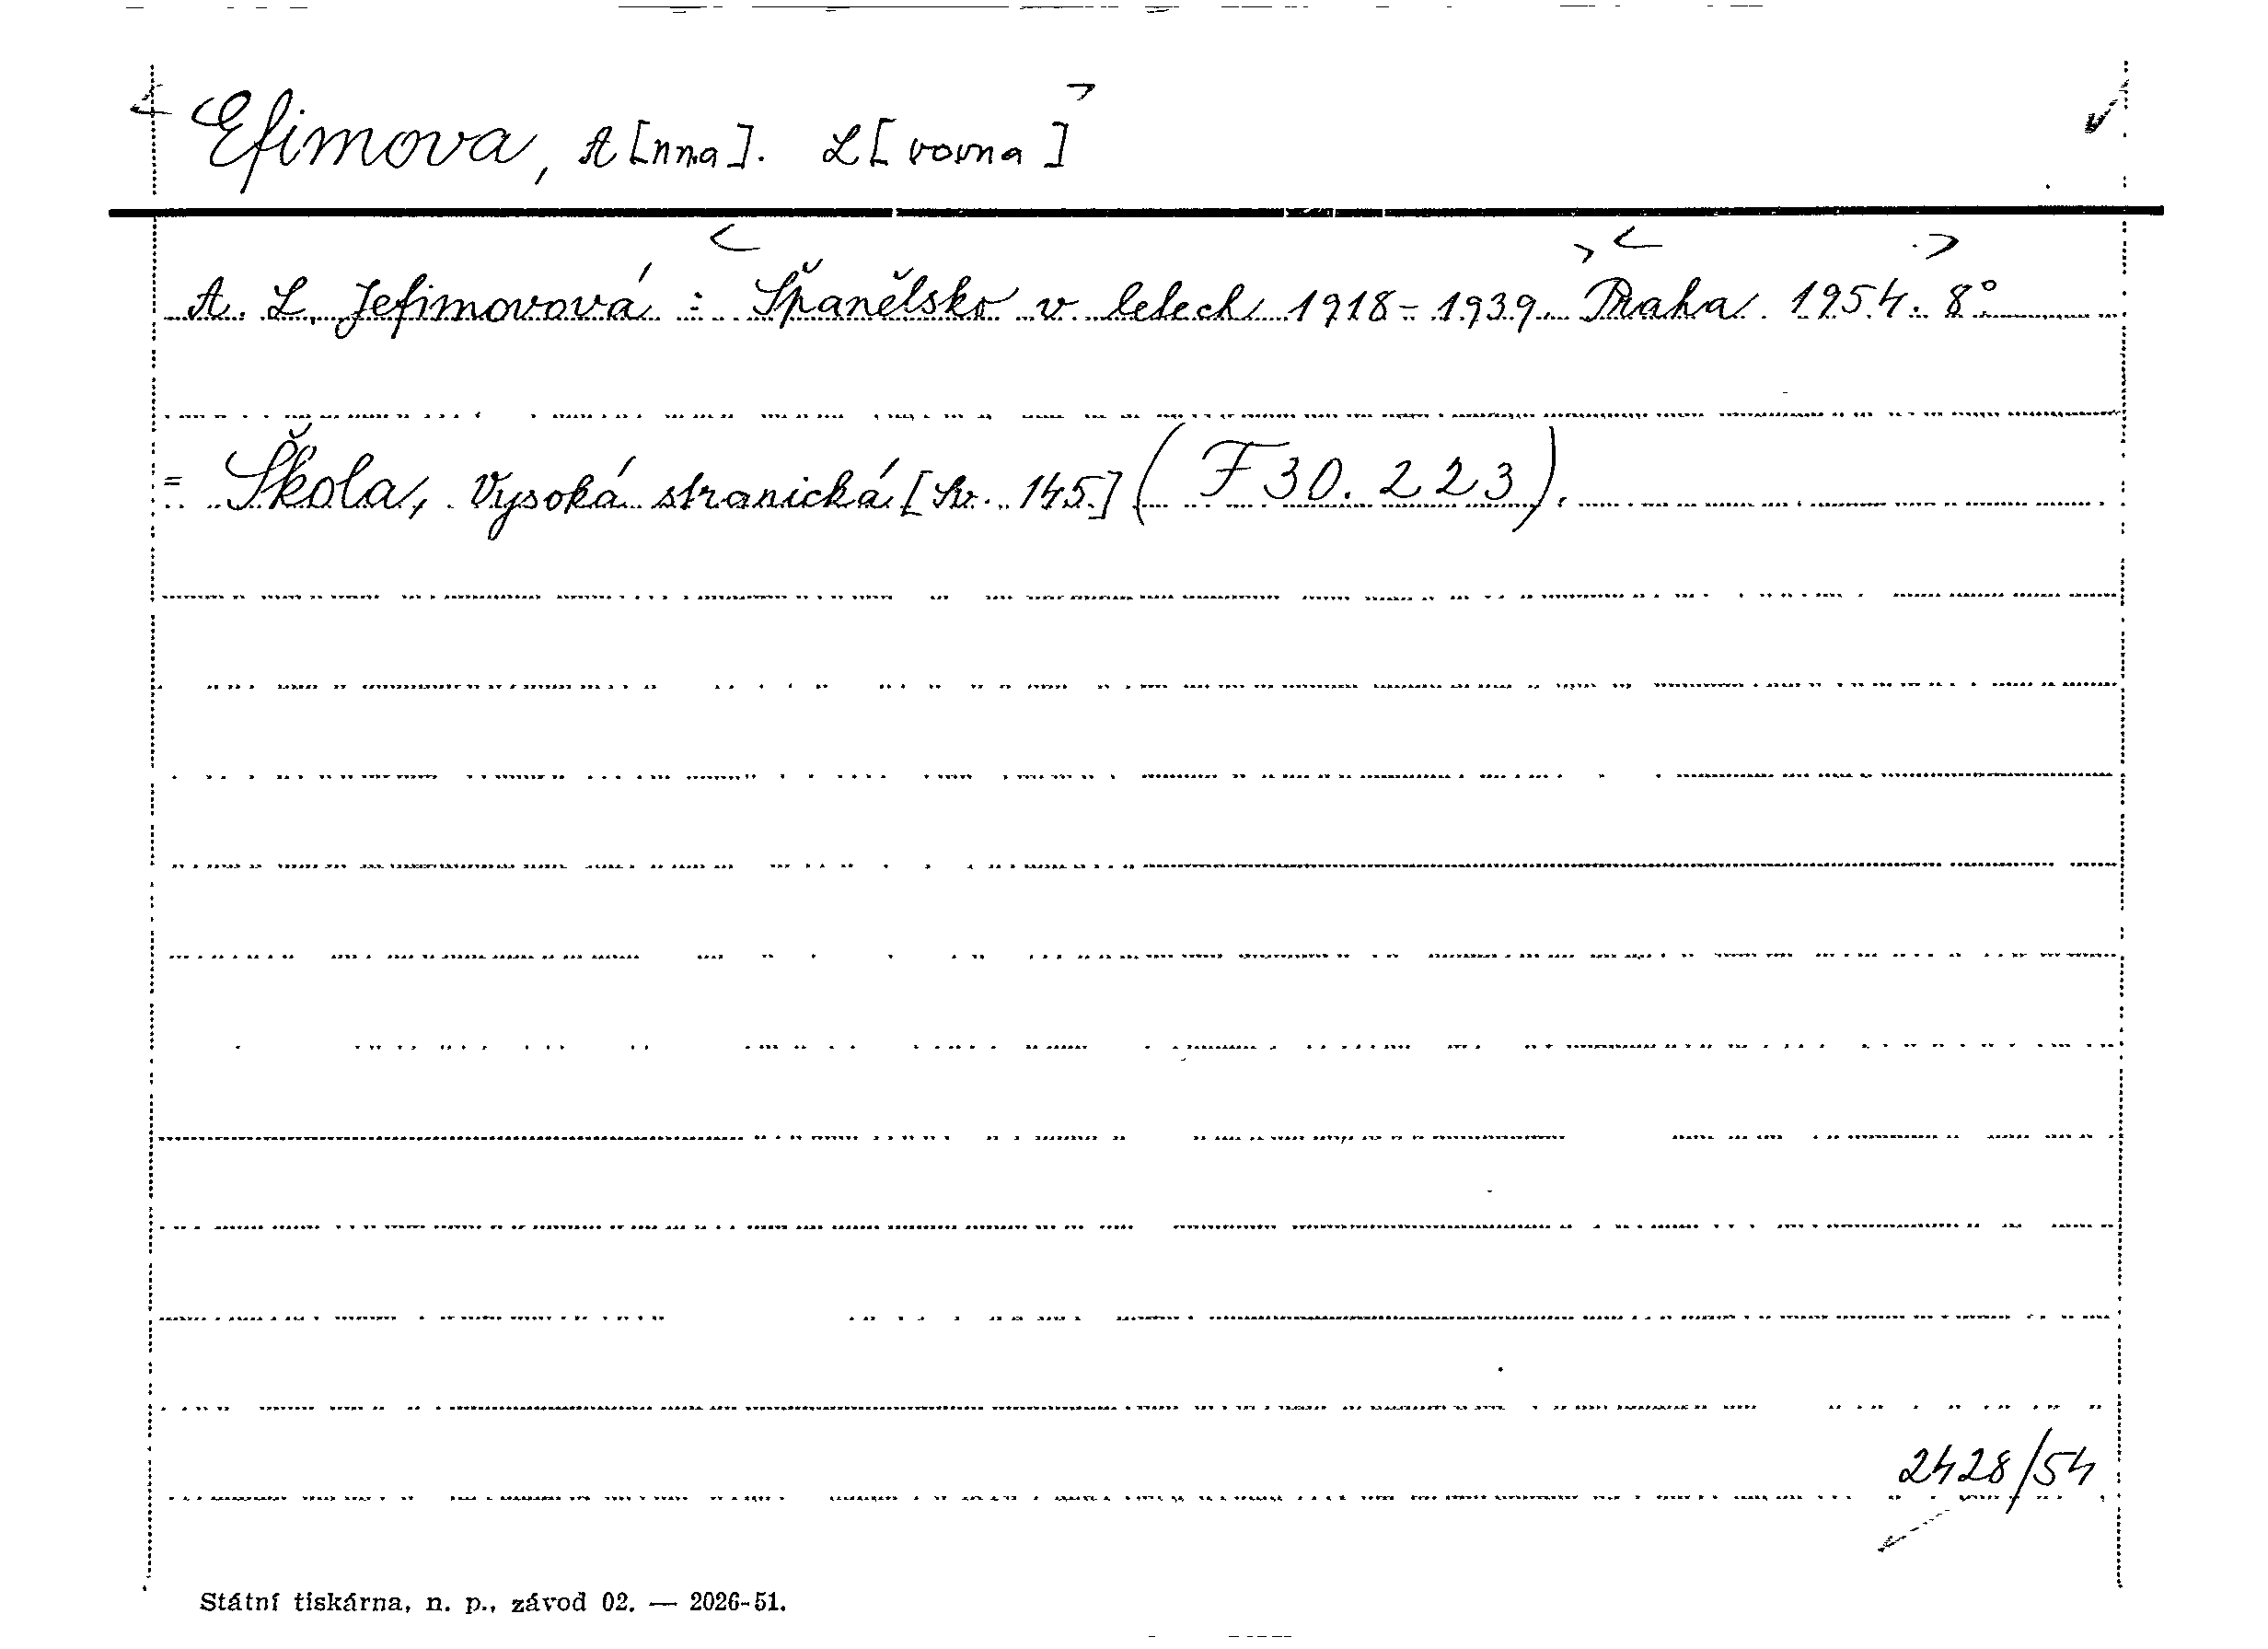 Efimova, A[nna]. L[vovna]
A. L. Jefimovová : Španělsko v letech 1918-1939. Praha 1954. 8°
= Škola, Vysoká stranická [Sv. 145] (F 30.223).
2428/54
Státní tiskárna, n. p., závod 02. — 2026-51.